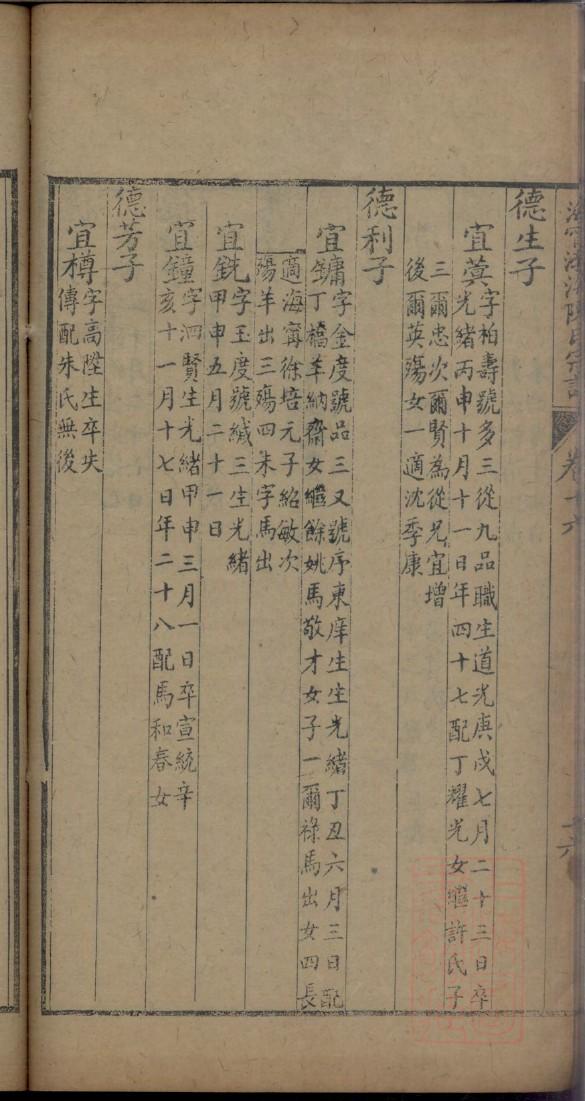 德生子
宜蓂字柏壽號多三從九品職生道光庚戌七月二十三日卒
光緒丙申十月十一日年四十七配丁耀光女繼許氏子
三爾忠次爾賢為從兄宜增
後爾英殤女一適沈季康
德利子
宜鏞字金度號品三又號序東庠生生光緒丁丑六月三日配
丁橋羊納齋女繼餘姚馬敬才女子一爾祿馬出女四長
適海甯徐培元子紹敏次
殤羊出三殤四朱字馬出
宜銑字玉度號緘三生光緒
甲申五月二十一日
宜鐘字泗賢生光緒甲申三月一日卒宣統辛
亥十一月十七日年二十八配馬和春女
德芳子
宜樽字高陞生卒失
傳配朱氏無後
卷十六
十六